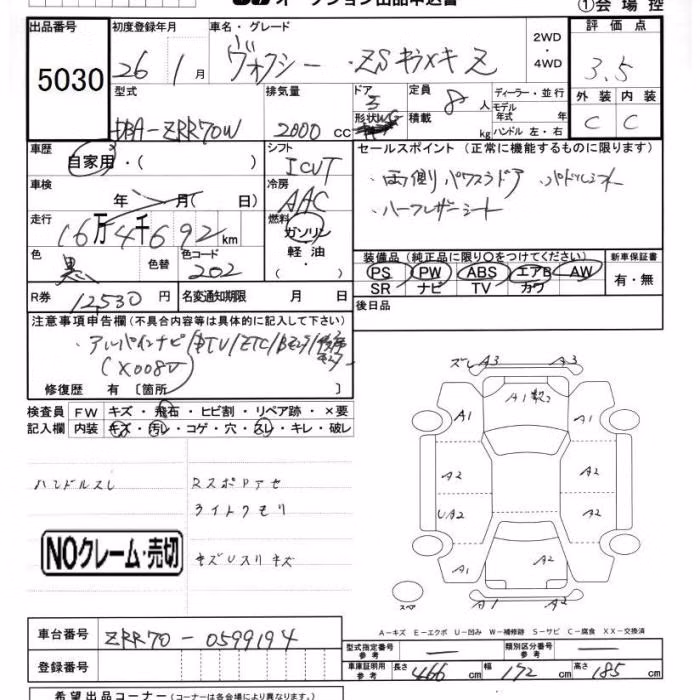 オークション出品申込書
①会場控
出品番号
5030
初度登録年月
26 1月
車名・グレード
ヴォクシー ZSキラメキ Z
2WD
・
4WD
評価点
3.5
外装 内装
C C
型式
DBA-ZRR70W
排気量
2000 cc
ドア
5
形状
定員
8 人
積載
kg
ディーラー・並行
モデル年式 年
ハンドル 左・右
車歴
自家用・( )
シフト
ICVT
セールスポイント (正常に機能するものに限ります)
・両側パワスラドア パドルシフト
・ハーフレザーシート
車検
年 月( 日)
冷房
AAC
走行
16万4千692km
燃料
ガソリン
軽油
・
( )
色
黒
色替
色コード
202
装備品 (純正品に限り○をつけてください)
PS PW ABS エアB AW
SR ナビ TV カワ
新車保証書
有・無
R券
12530円
名変通知期限 月 日
後日品
注意事項申告欄 (不具合内容等は具体的に記入して下さい)
・アルパインナビ/BTV/ETC/Bモニ/
(X008V)
修復歴 有 〔箇所 〕
検査員
記入欄
FW キズ・飛石・ヒビ割・リペア跡・×要
内装 キズ・汚レ・コゲ・穴・スレ・キレ・破レ
ハンドルスレ
RスポPアセ
ライトクモリ
キズUスリキズ
NOクレーム・売切
ズレ A3 A3
A1
A1
A1
A2
A2
A2
UA2
A2
A1
A2
A1
A1 A2
スペア
A-キズ E-エクボ U-凹み W-補修跡 S-サビ C-腐食 XX-交換済
車台番号
ZRR70-0599194
登録番号
型式指定番号
参考
―
類別区分番号
参考
―
車庫証明用
参考
長さ 466 cm 幅 172 cm 高さ 185 cm
希望出品コーナー (コーナーは各会場により異なります。)